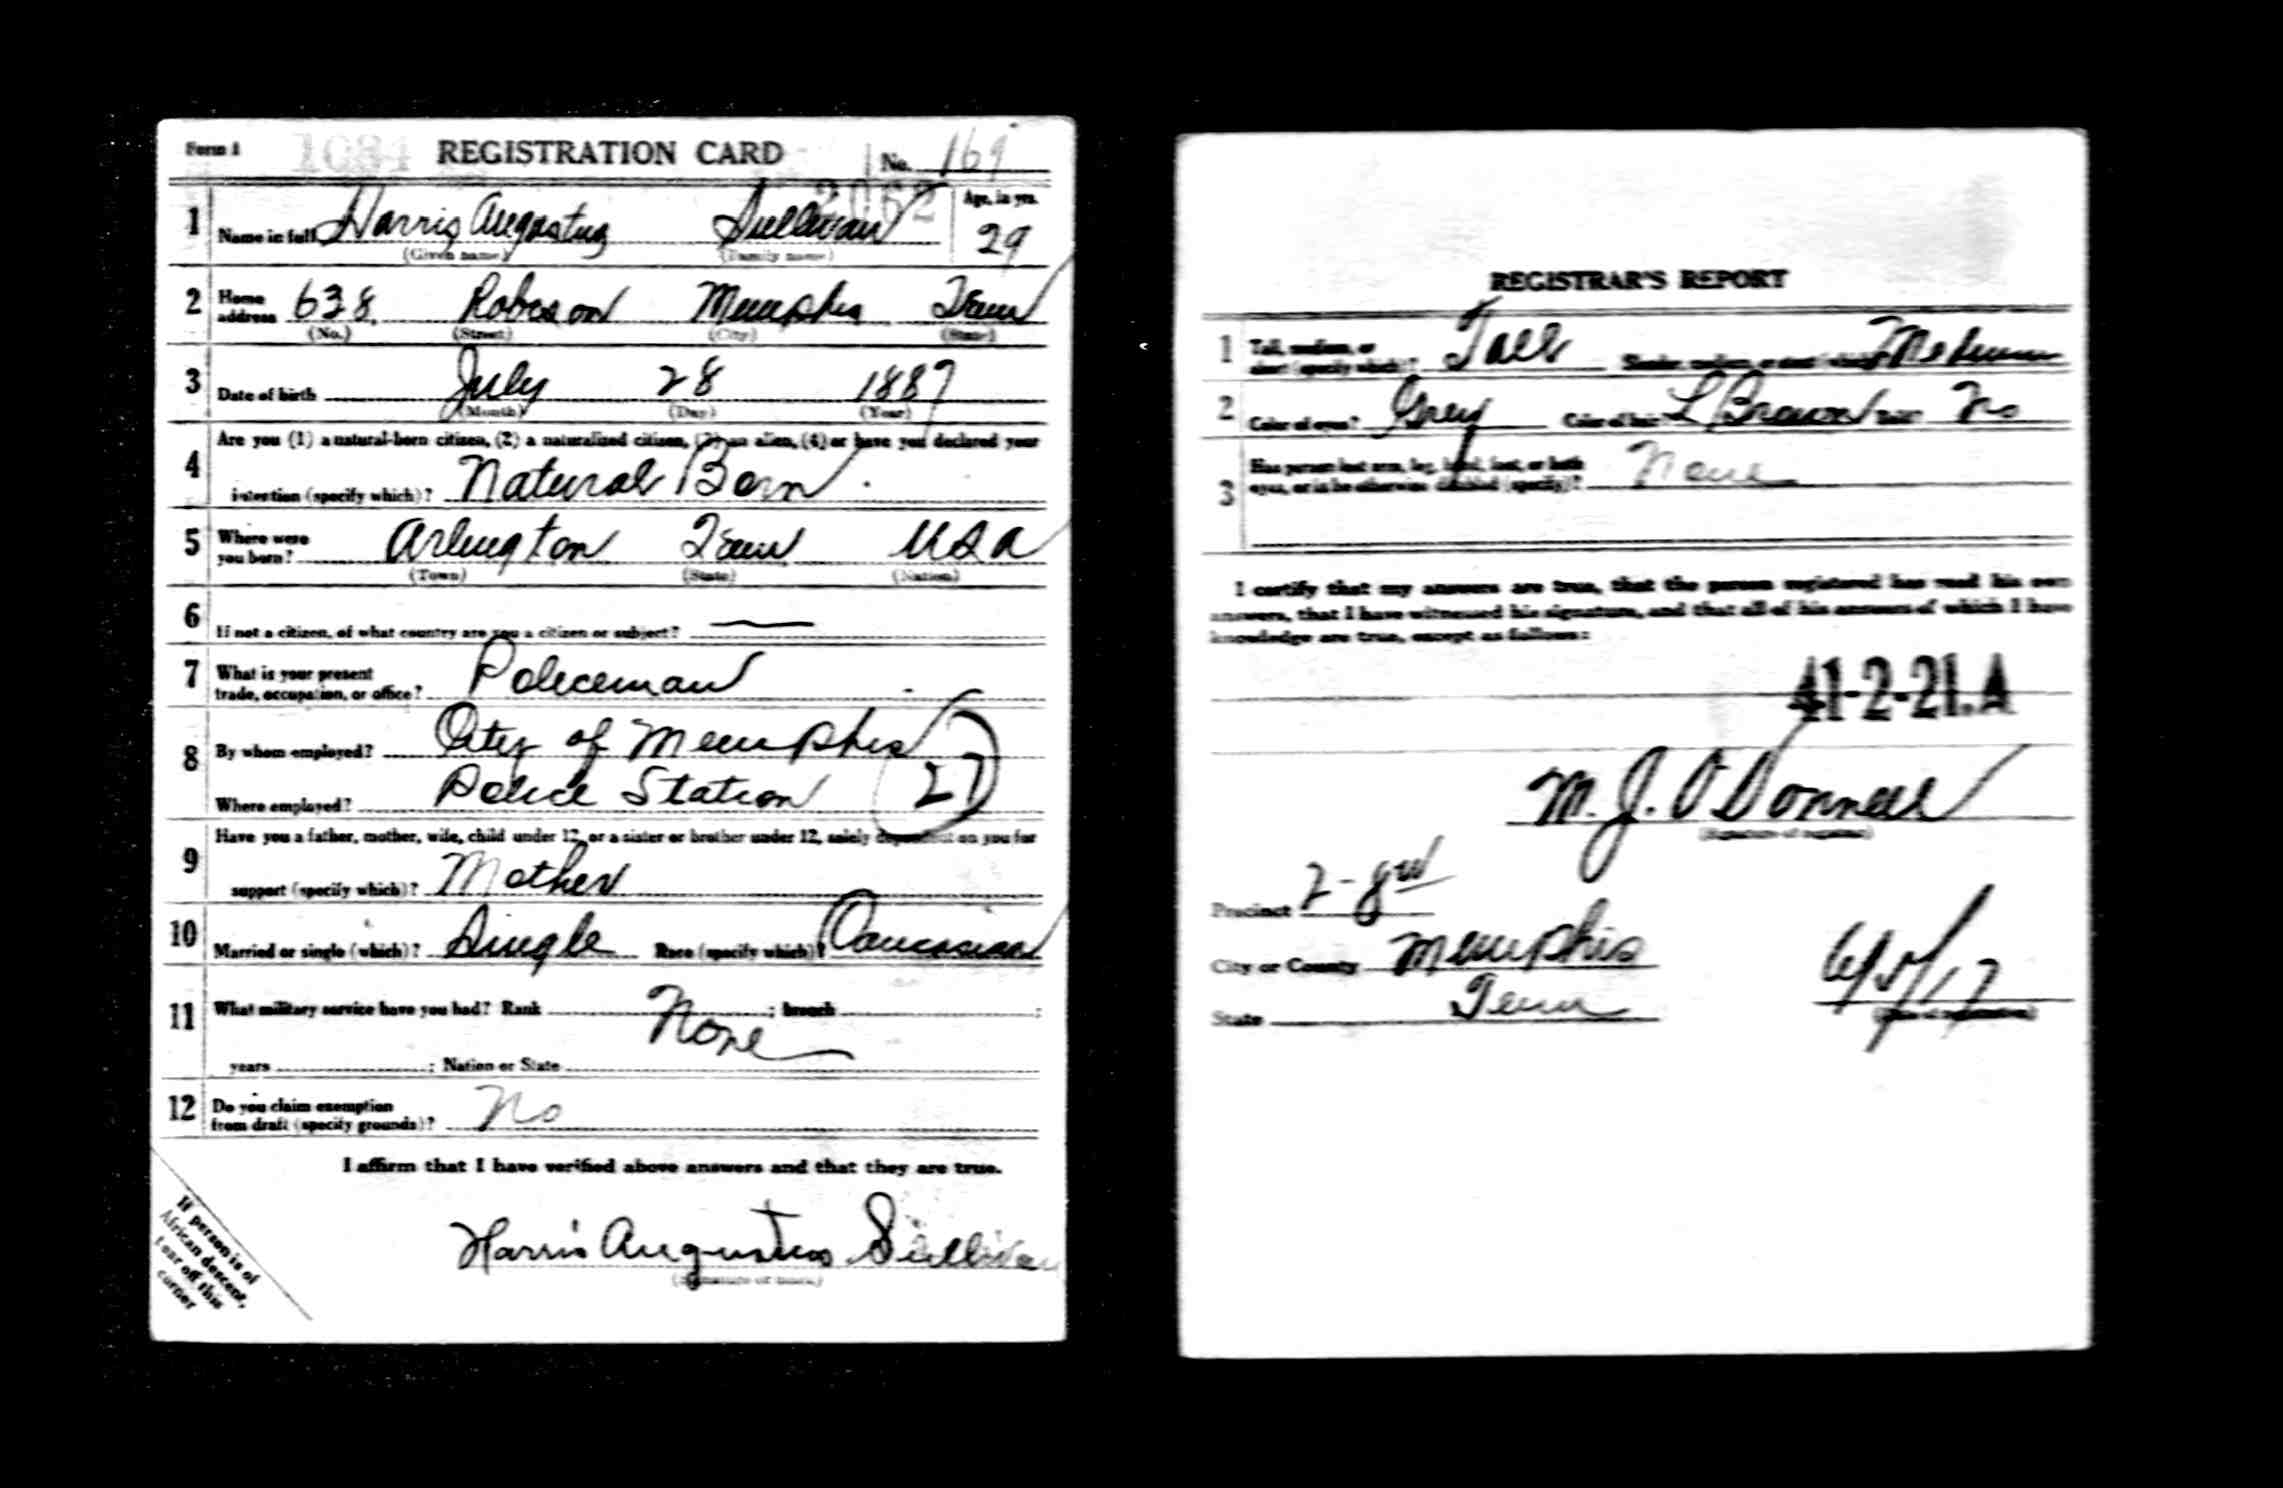 Form 1 1084 REGISTRATION CARD No. 169
2062
1 Name in full Harris Augustus Sullivan Age, in yrs. 29
(Given name) (Family name)
2 Home address 638 Robeson Memphis Tenn
(No.) (Street) (City) (State)
3 Date of birth July 28 1887
(Month) (Day) (Year)
4 Are you (1) a natural-born citizen, (2) a naturalized citizen, (3) an alien, (4) or have you declared your
intention (specify which)? Natural Born.
5 Where were you born? Arlington Tenn USA
(Town) (State) (Nation)
6 If not a citizen, of what country are you a citizen or subject? —
7 What is your present
trade, occupation, or office? Policeman
8 By whom employed? City of Memphis
Where employed? Police Station 27
9 Have you a father, mother, wife, child under 12, or a sister or brother under 12, solely dependent on you for
support (specify which)? Mother
10 Married or single (which)? Single Race (specify which)? Caucasian
11 What military service have you had? Rank None ; branch ;
years ; Nation or State
12 Do you claim exemption
from draft (specify grounds)? No
I affirm that I have verified above answers and that they are true.
Harris Augustus Sullivan
(Signature or mark)
If person is of
African descent,
tear off this
corner
REGISTRAR'S REPORT
1 Tall, medium, or
short (specify which)? Tall Slender, medium, or stout (which)? Medium
2 Color of eyes? Grey Color of hair? L Brown Bald? No
3 Has person lost arm, leg, hand, foot, or both
eyes, or is he otherwise disabled (specify)? None
I certify that my answers are true, that the person registered has read his own
answers, that I have witnessed his signature, and that all of his answers of which I have
knowledge are true, except as follows:
41-2-21.A
M. J. O'Donnell
(Signature of registrar)
Precinct 2-8 w
City or County Memphis
State Tenn
6/5/17
(Date of registration)